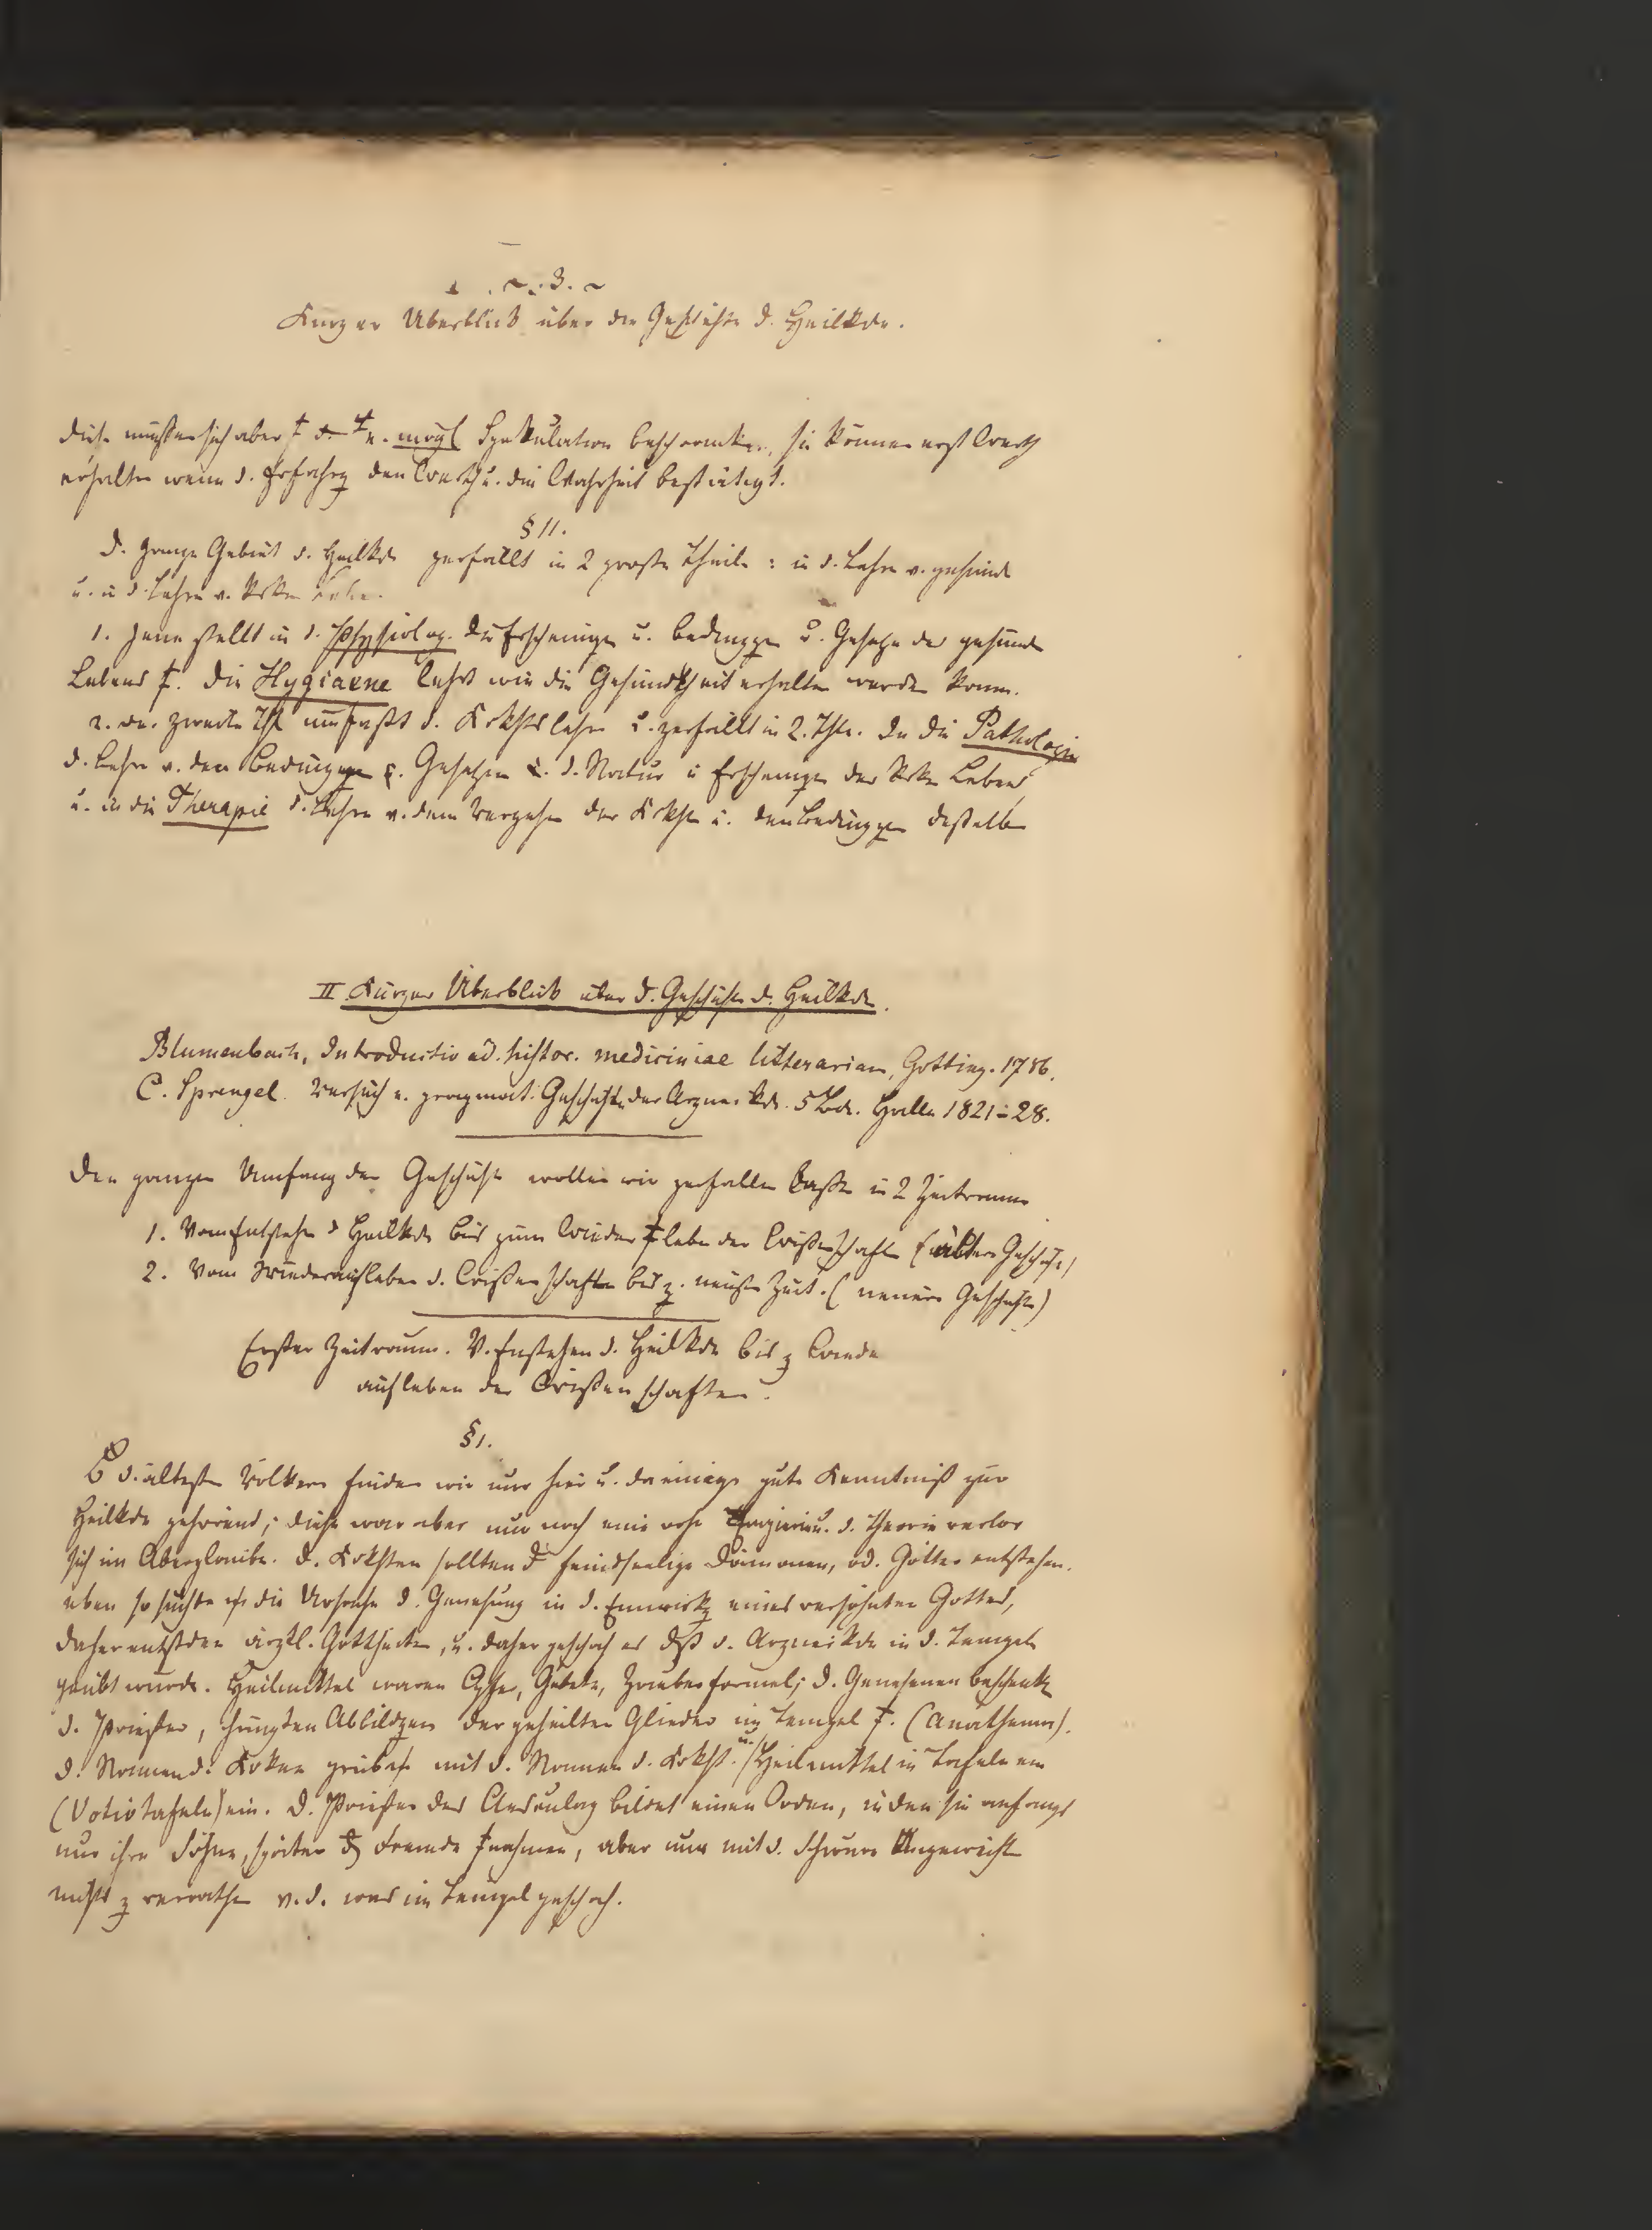 ~ 3. ~
Kurzer Überblick über die Geschichte d. Heilkde.
diese müssen sich aber † d. e. mögl Spekulation beschraenken, sie können erst Werth
erhalten wenn d. Erfahrg den Werth u. die Wahrheit bestätigt.
§ 11.
D. ganze Gebiet d. Heilkde zerfällt in 2 große Theile: in d. Lehre v. gesunde
u. in d. Lehre v. krken Leben.
1. Jene stellt in d. Physiolog. die Erscheinuge u. Bedingge u. Gesetze des gesunde
Lebens †. Die Hygiaene lehrt wie die Gesundheit erhalten werden kann.
2. der zweite Thl umfaßt d. Krkhtslehre u. zerfällt in 2. Thle. In die Pathologie
d. Lehre v. den Bedingungen u. Gesetzen u. d. Natur u Erscheingen des krken Lebens,
u. in die Therapie d. Lehre v. dem Vergehen der Krkht u. den Bedinggen deßelben
II Kurzer Überblick über d. Geschichte d. Heilkde.
Blumenbach, Introductio ad. histor. mediciniae litterariam, Gotting. 1786.
C. Sprengel. Versuch e. pragmat. Geschichte der Arzneikde. 5 Bde. Halle 1821–28.
Den ganzen Umfang der Geschichte wollen wir zerfallen laßen in 2 Zeitraeume
1. Vom Entstehen d Heilkde bis zum Wieder†leben der Wißenschaften (ältere Geschichte)
2. Vom Wiederaufleben d. Wißenschaften bis z. neusten Zeit. (neuere Geschichte)
Erster Zeitraum. V. Enstehen d. Heilkde bis z Wieder
aufleben der Wißenschaften.
§ 1.
B d. ältesten Völkern finden wir nur hier u. da einige gute Kenntniß zur
Heilkde gehörend; diese war aber nur noch eine rohe u. d. Theorie verlor
sich im Aberglaube. D. Krkhten sollten d feindseelige Dämonen, od. Götter entstehen.
eben so suchte die Ursache d. Genesung in d. Einwirkg eines versöhnten Gottes,
daher entstden ärztl. Gottheiten, u. daher geschah es dß d. Arzneikde in d. Tempeln
geübt wurde. Heilmittel waren Opfer, Gebete, Zauberformel; d. Genesenen beschenkten
d. Priester, hängten Abbildgen der geheilten Glieder im Tempel †. (Anathema).
d. Namen d. Krken grub mit d. Namen d. Krkht. u. Heilmittel in Tafeln ein
(Votivtafeln) ein. D. Priester des Aesculap bildet einen Orden, in den sie anfangs
nur ihre Söhne, später Fremde †nahmen, aber nur mit d. Schwure Ungeweihten
nichts z verrathen v. d. was im Tempel geschah.